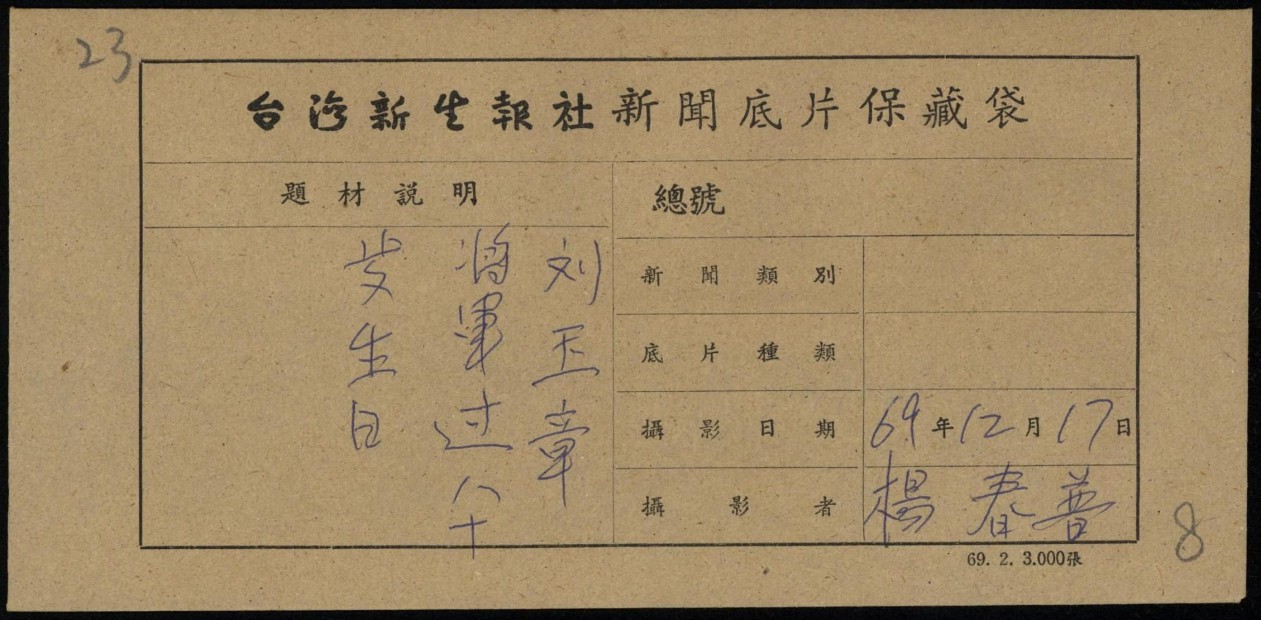 23
台灣新生報社新聞底片保藏袋
題材說明
刘玉章
将軍过八十
岁生日
總號
新聞類別
底片種類
攝影日期 69年12月17日
攝影者 楊春普
69. 2. 3.000張
8